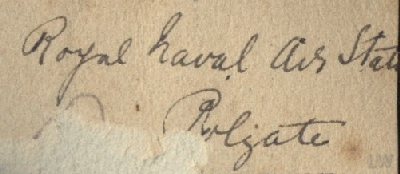 Royal Naval Air Stati
Polgate
LW